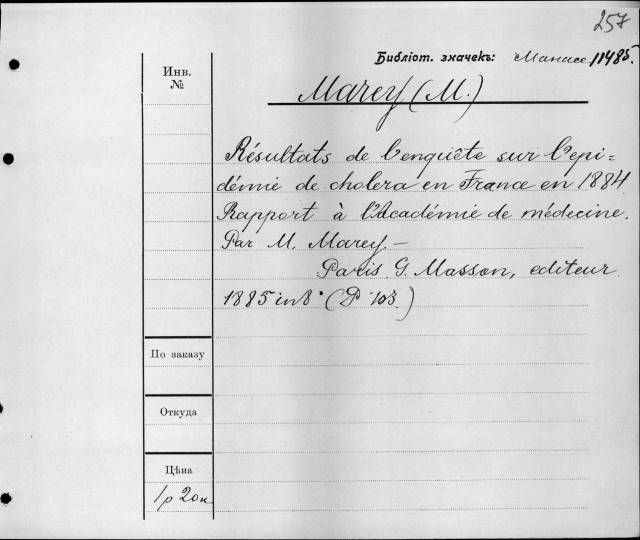 257
Библіот. значекъ: Манасе 11485.
Инв.
№
Marey (M.)
Résultats de l'enquête sur l'epi=
démie de cholera en France en 1884
Rapport à l'Académie de médecine.
Par M. Marey.—
Paris G. Masson, editeur.
1885 in 8° (P 103.)
По заказу
Откуда
Цѣна
1 р 20 к